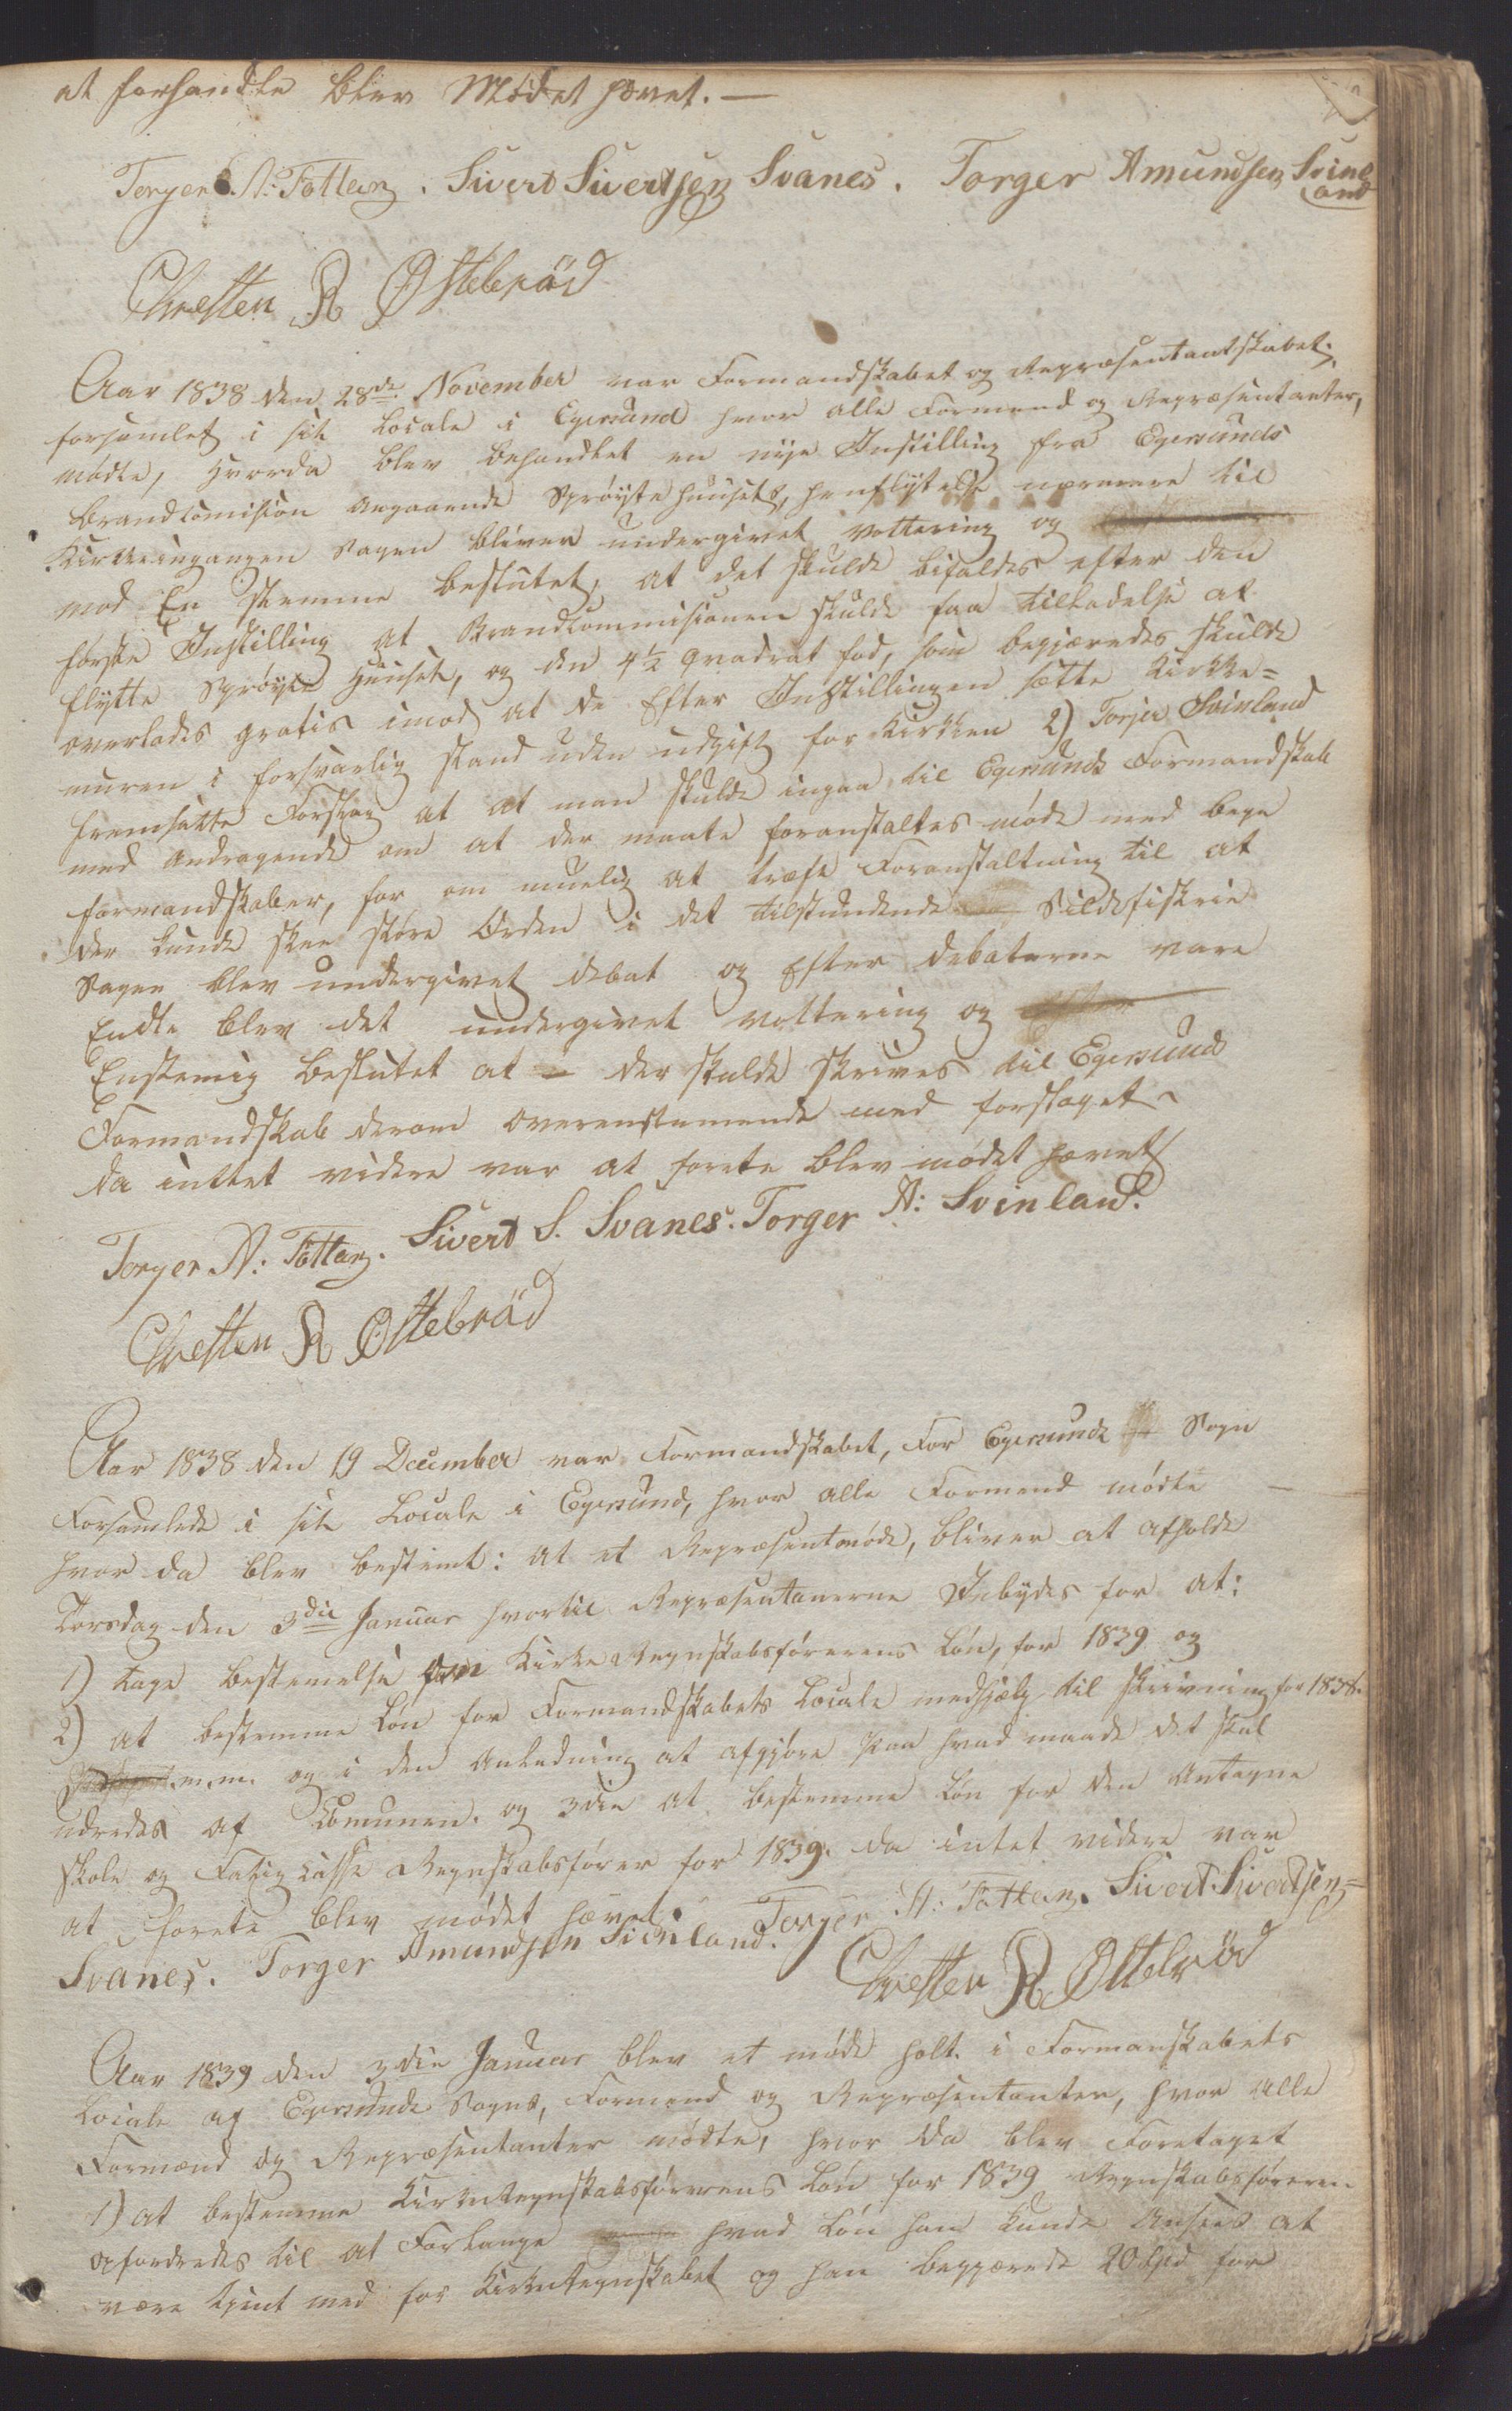 at forhandle blev Mødet hævet. —
Torger A: Tottan. Sivert Sivertsen Svanes. Torger Amundsen Svine
land
Chresten R Østebröd
Aar 1838 den 28de November var Formandskabet og Repræsentantskabet,
forsamlet i sit Locale i Egersund hvor alle Formænd og Repræsentanter,
mødte, hvorda blev behandlet en nye Instilling fra Egersunds
Brandcomision angaaende Sprøytehuusets, henflytelse nærmere til
Kirkeingangen Sagen bliver undergivet vottering og
mod En stemme beslutet, at det skulde bifaldes efter den
første Instilling at Brandcommisionen skulde faa tilladelse at
flytte Sprøyte Huuset, og den 4 ½ Qvadrat fod, som begjæredes skulde
overlades gratis imod at de Efter Instillingen sætte Kirke=
muren i forsvarlig stand uden udgift for Kirken 2) Torjer Svinland
fremsatte Forslag at at man skulde ingaa til Egersunds Formandskab
med andragende om at der maate foranstaltes møde med bege
formandskaber, for om muelig at træfe Foranstaltning til at
der kunde skee støre Orden i det tilstundende Sildefiskrie
Sagen blev undergivet debat og Efter debaterne vare
Endte blev det undergivet vottering og Efter
Enstemig beslutet at – der skulde skrives til Egersund
Formandskab derom overenstemende med forslaget
da inttet videre var at forete blev mødet hævet
Torger A: Tottan. Sivert S. Svanes. Torger A: Svinland.
Chresten R Østebröd
Aar 1838 den 19 December var Formandskabet, for Egersunds Sogn
Forsamlede i sit Locale i Egersund, hvor alle Formend mødte —
hvor da blev bestemt: at et Repræsentmøde, bliver at afholde
Torsdag den 3die Januar hvortil Repræsentanerne Inbydes for at:
1) tage bestemelse om Kirke Regnskabsførerens Løn, for 1839 og
2) at bestemme Løn for Formandskabets Locale medhjelp til skrivning for 1838.
m.m. og i den Anledning at afgjøre paa hvad maade det skal
udredes af Comunen. og 3die at bestemme Løn for den Antagne
skole og Fatigkasse Regnskabsfører for 1839. da intet videre var
at forete blev mødet hævet. Torger A: Tottan. Sivert Sivertsen=
Svanes. Torger Amundsen Svinland.
Chresten R Østebröd
Aar 1839 den 3die Januar blev et møde holt i Formanskabets
Locale af Egersunds Sogns, Formend og Repræsentanter, hvor alle
Formænd og Repræsentanter mødte, hvor da blev Foretaget
1) at bestemme Kirkeregnskabsførerens Løn for 1839 Regnskabsføreren
opfordredes til at Forlange hvad Løn han kunde Ansees at
være tjent med for Kirkeregnskabet og han begjærede 20 Spd for